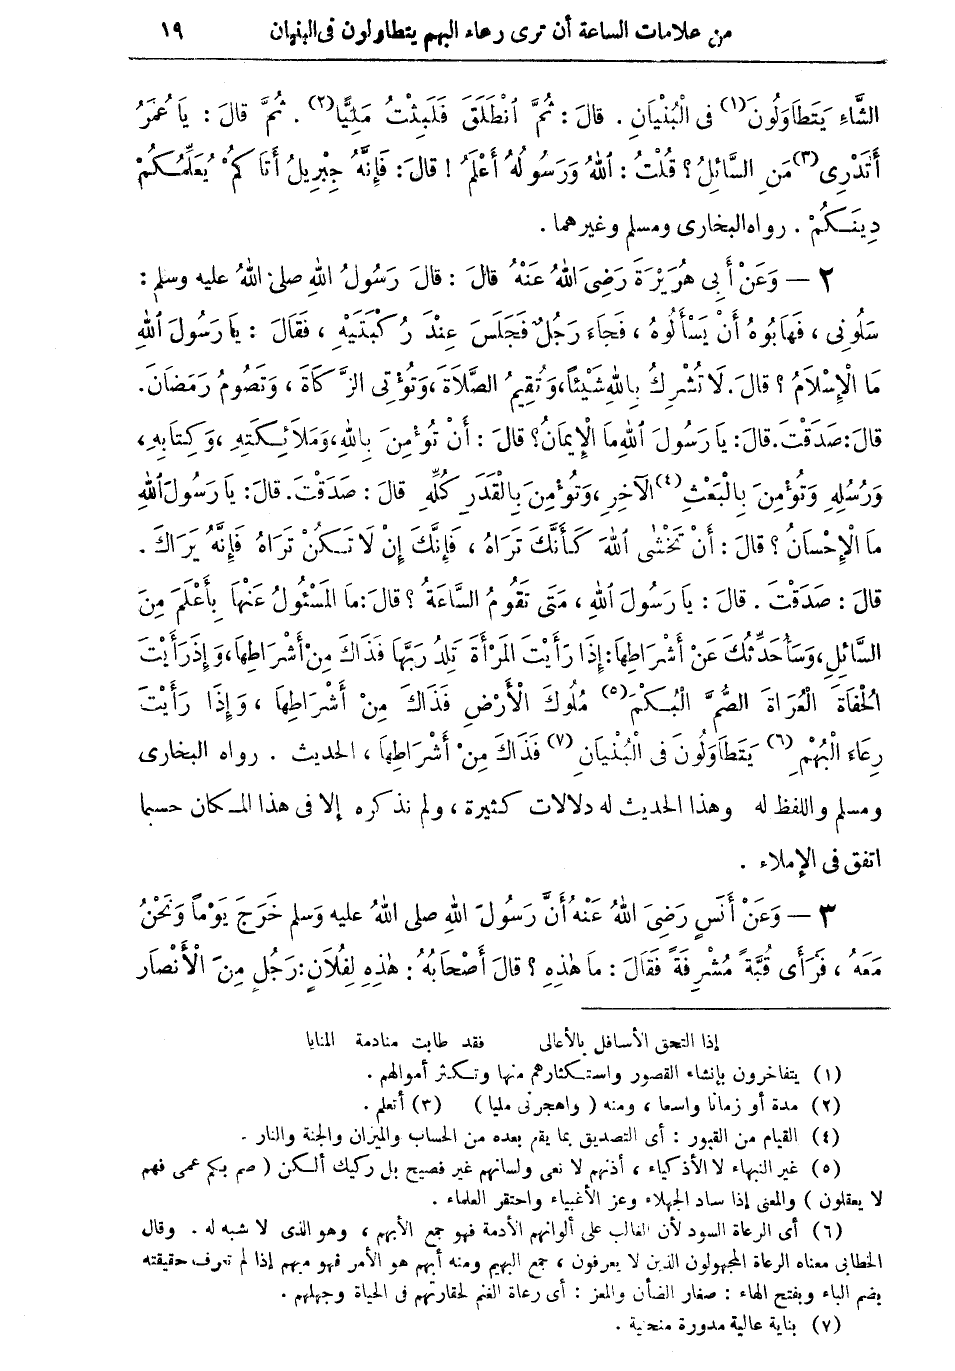 من علامات الساعة أن ترى رعاء البهم يتطاولون فى البنيان ١٩
الشَّاءِ يَتَطَاوَلُونَ(١) فى الْبُنْيَانِ . قالَ : ثُمَّ انْطَلَقَ فَلَبِثْتُ مَلِيًّا(٢) . ثُمَّ قالَ : يَا عُمَرُ
أَتَدْرِى(٣) مَنِ السَّائِلُ ؟ قُلْتُ : اللهُ وَرَسُولُهُ أَعْلَمُ ! قالَ : فَإِنَّهُ جِبْرِيلُ أَتَاكُمْ يُعَلِّمُكُمْ
دِينَكُمْ . رواه البخارى ومسلم وغيرهما .
٢ — وَعَنْ أَبِى هُرَيْرَةَ رَضِىَ اللهُ عَنْهُ قالَ : قالَ رَسُولُ اللهِ صلى اللهُ عليه وسلم :
سَلُونِى ، فَهَابُوهُ أَنْ يَسْأَلُوهُ ، فَجَاءَ رَجُلٌ فَجَلَسَ عِنْدَ رُكْبَتَيْهِ ، فَقَالَ : يَا رَسُولَ اللهِ
مَا الْإِسْلَامُ ؟ قالَ . لَا تُشْرِكُ بِاللهِ شَيْئًا ، وَتُقِيمُ الصَّلَاةَ ، وَتُؤْتِى الزَّكَاةَ ، وَتَصُومُ رَمَضَانَ .
قالَ : صَدَقْتَ . قالَ : يَا رَسُولَ اللهِ مَا الْإِيمَانُ ؟ قالَ : أَنْ تُؤْمِنَ بِاللهِ ، وَمَلَائِكَتِهِ ، وَكِتَابِهِ ،
وَرُسُلِهِ وَتُؤْمِنَ بِالْبَعْثِ(٤) الْآخِرِ ، وَتُؤْمِنَ بِالْقَدَرِ كُلِّهِ قالَ : صَدَقْتَ . قالَ : يَا رَسُولَ اللهِ
مَا الْإِحْسَانُ ؟ قالَ : أَنْ تَخْشَى اللهَ كَأَنَّكَ تَرَاهُ ، فَإِنَّكَ إِنْ لَا تَكُنْ تَرَاهُ فَإِنَّهُ يَرَاكَ .
قالَ : صَدَقْتَ . قالَ : يَا رَسُولَ اللهِ ، مَتَى تَقُومُ السَّاعَةُ ؟ قالَ : مَا المَسْئُولُ عَنْهَا بِأَعْلَمَ مِنَ
السَّائِلِ ، وَسَأُحَدِّثُكَ عَنْ أَشْرَاطِهَا : إِذَا رَأَيْتَ المَرْأَةَ تَلِدُ رَبَّهَا فَذَاكَ مِنْ أَشْرَاطِهَا ، وَإِذَ رَأَيْتَ
الْحُفَاةَ الْعُرَاةَ الصُّمَّ الْبُكْمَ(٥) مُلُوكَ الْأَرْضِ فَذَاكَ مِنْ أَشْرَاطِهَا ، وَإِذَا رَأَيْتَ
رِعَاءَ الْبُهْمِ (٦) يَتَطَاوَلُونَ فى الْبُنْيَانِ (٧) فَذَاكَ مِنْ أَشْرَاطِهَا ، الحديث . رواه البخارى
ومسلم واللفظ له وهذا الحديث له دلالات كثيرة ، ولم نذكره إلا فى هذا المكان حسبما
اتفق فى الإملاء .
٣ — وَعَنْ أَنَسٍ رَضِىَ اللهُ عَنْهُ أَنَّ رَسُولَ اللهِ صلى اللهُ عليه وَسلم خَرَجَ يَوْمًا وَنَحْنُ
مَعَهُ ، فَرَأَى قُبَّةً مُشْرِفَةً فَقَالَ : مَا هٰذِهِ ؟ قالَ أَصْحَابُهُ : هٰذِهِ لِفُلَانٍ : رَجُلٍ مِنَ الْأَنْصَارِ
إذا التحق الأسافل بالأعالى فقد طابت منادمة المنايا
(١) يتفاخرون بإنشاء القصور واستكثارهم منها وتكثر أموالهم .
(٢) مدة أو زمانا واسعا ، ومنه ( واهجرنى مليا ) (٣) أتعلم .
(٤) القيام من القبور : أى التصديق بما يقم بعده من الحساب والميزان والجنة والنار .
(٥) غير النبهاء لا الأذكياء ، أذنهم لا نعى ولسانهم غير فصيح بل ركيك ألكن ( صم بكم عمى فهم
لا يعقلون ) والمعنى إذا ساد الجهلاء وعز الأغبياء واحتقر العلماء .
(٦) أى الرعاة السود لأن الغالب على ألوانهم الأدمة فهو جمع الأبهم ، وهو الذى لا شبه له . وقال
الخطابى معناه الرعاة المجهولون الذين لا يعرفون ، جمع البهيم ومنه أبهم هو الأمر فهو مبهم إذا لم تعرف حقيقته
بضم الباء وبفتح الهاء : صغار الضأن والمعز : أى رعاة الغنم لحقارتهم فى الحياة وجهلهم .
(٧) بناية عالية مدورة منحنية .